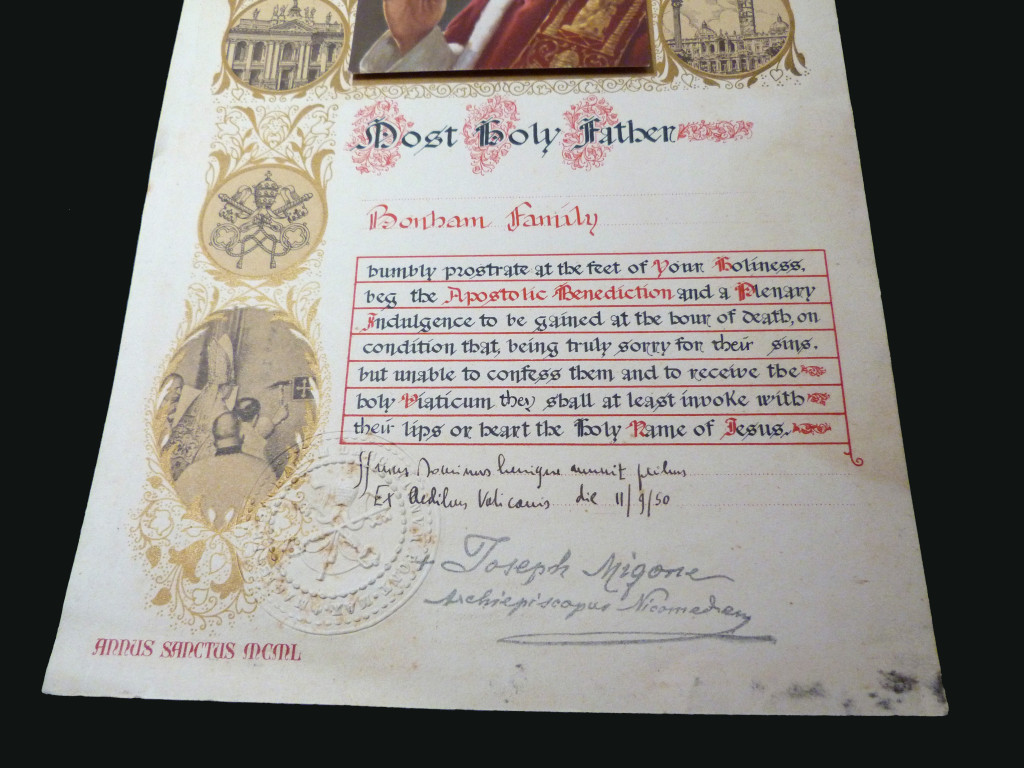 Most Holy Father
Bonham Family
humbly prostrate at the feet of Your Holiness,
beg the Apostolic Benediction and a Plenary
Indulgence to be gained at the hour of death, on
condition that, being truly sorry for their sins,
but unable to confess them and to receive the
holy Viaticum they shall at least invoke with
their lips or heart the Holy Name of Jesus.
Dominus benigne annuit precibus
Ex Aedibus Vaticanis die 11/9/50
+ Joseph Migone
Archiepiscopus Nicomedien
ANNUS SANCTUS MCML